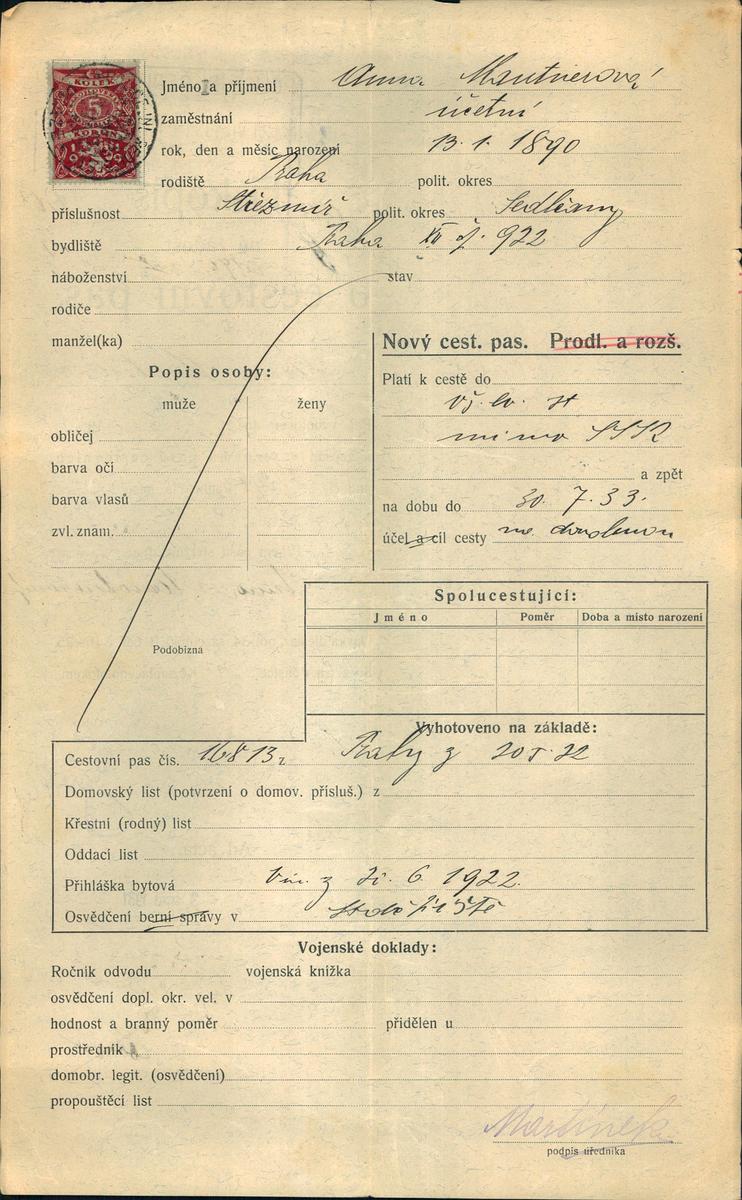 KOLEK
5
KORUN
1919
Jméno a příjmení Anna Mautnerová
zaměstnání účetní
rok, den a měsíc narození 13. 1. 1890
rodiště Praha polit. okres
příslušnost Střezmíř polit. okres Sedlčany
bydliště Praha XII čj. 922
náboženství stav
rodiče
manžel(ka)
Nový cest. pas. Prodl. a rozš.
Popis osoby:
muže ženy
obličej
barva očí
barva vlasů
zvl. znam.
Platí k cestě do
vš. ev. st
mimo SSSR
a zpět
na dobu do 30. 7. 33.
účel a cíl cesty na dovolenou
Podobizna
Spolucestující:
Jméno Poměr Doba a místo narození
Vyhotoveno na základě:
Cestovní pas čís. 16813 z Prahy z
Domovský list (potvrzení o domov. přísluš.) z
Křestní (rodný) list
Oddací list
Přihláška bytová z 6. 1922.
Osvědčení berní správy v
Vojenské doklady:
Ročník odvodu vojenská knížka
osvědčení dopl. okr. vel. v
hodnost a branný poměr přidělen u
prostředník
domobr. legit. (osvědčení)
propouštěcí list
Martínek
podpis úředníka